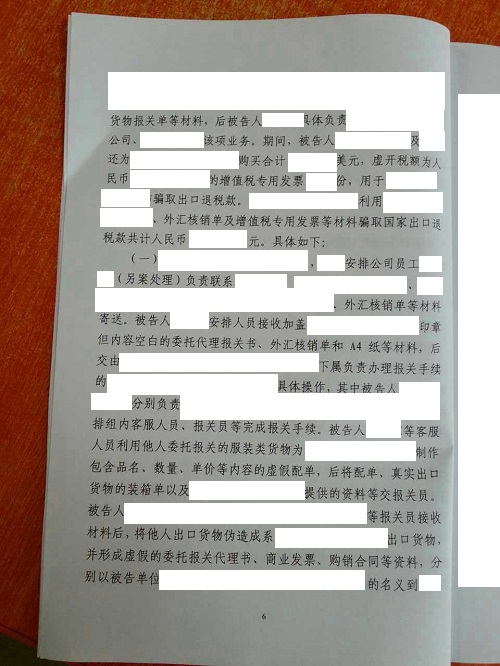 货物报关单等材料，后被告人 具体负责
公司、 该项业务。期间，被告人 及
还为 购买合计 美元，虚开税额为人
民币 的增值税专用发票 份，用于
骗取出口退税款。 利用
、外汇核销单及增值税专用发票等材料骗取国家出口退
税款共计人民币 元。具体如下：
（一） ， 安排公司员工
（另案处理）负责联系 、
、外汇核销单等材料
寄送。被告人 安排人员接收加盖 印章
但内容空白的委托代理报关书、外汇核销单和 A4 纸等材料，后
交由 下属负责办理报关手续
的 具体操作，其中被告人
分别负责
排组内客服人员、报关员等完成报关手续。被告人 等客服
人员利用他人委托报关的服装类货物为 制作
包含品名、数量、单价等内容的虚假配单，后将配单、真实出口
货物的装箱单以及 提供的资料等交报关员。
被告人 等报关员接收
材料后，将他人出口货物伪造成系 出口货物，
并形成虚假的委托报关代理书、商业发票、购销合同等资料，分
别以被告单位 的名义到
6